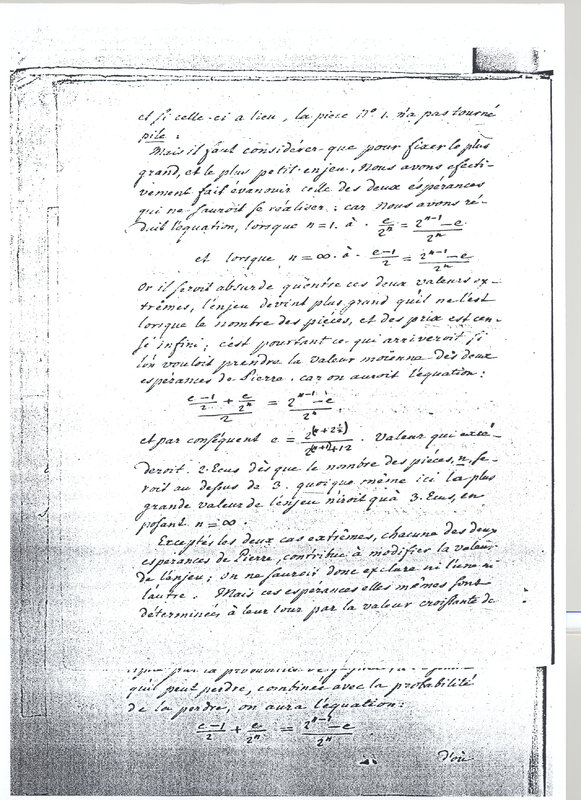 et si celle-ci a lieu, la piece N.º 1. n'a pas tourné
pile.
Mais il faut considérer que pour fixer le plus
grand, et le plus petit enjeu, Nous avons efecti-
vement fait évanouir celle des deux espérances
qui ne sauroit se réaliser: car nous avons ré-
duit l'équation, lorsque n=1. à . e/2^n = (2^{n-1} - e)/2^n
et lorsque n = ∞. à . (e-1)/2 = (2^{n-1} - e)/2^n
Or il seroit absurde qu'entre ces deux valeurs ex-
trêmes, l'enjeu devint plus grand qu'il ne l'est
lorsque le nombre des piéces, et des prix est cen-
sé infini; c'est pourtant ce qui arriveroit si
l'on vouloit prendre la valeur moienne des deux
espérances de Pierre. car on auroit l'équation:
((e-1)/2 + e/2^n)/2 = (2^{n-1} - e)/2^n
et par conséquent e = . Valeur qui excé-
deroit 2. Ecus dès que le nombre des piéces, n, se-
roit au dessus de 3. quoique même ici la plus
grande valeur de l'enjeu n'iroit qu'à 3. Ecus, en
posant n=∞.
Exceptés les deux cas extrêmes, chacune des deux
esperances de Pierre, contribue à modifier la valeur
de l'enjeu; on ne sauroit donc exclure ni l'une ni
l'autre. Mais ces esperances elles mêmes sont
déterminées à leur tour par la valeur croissante de
qu'il peut perdre, combinée avec la probabilité
de la perdre, on aura l'équation:
(e-1)/2 + e/2^n = (2^{n-1} - e)/2^n
d'où